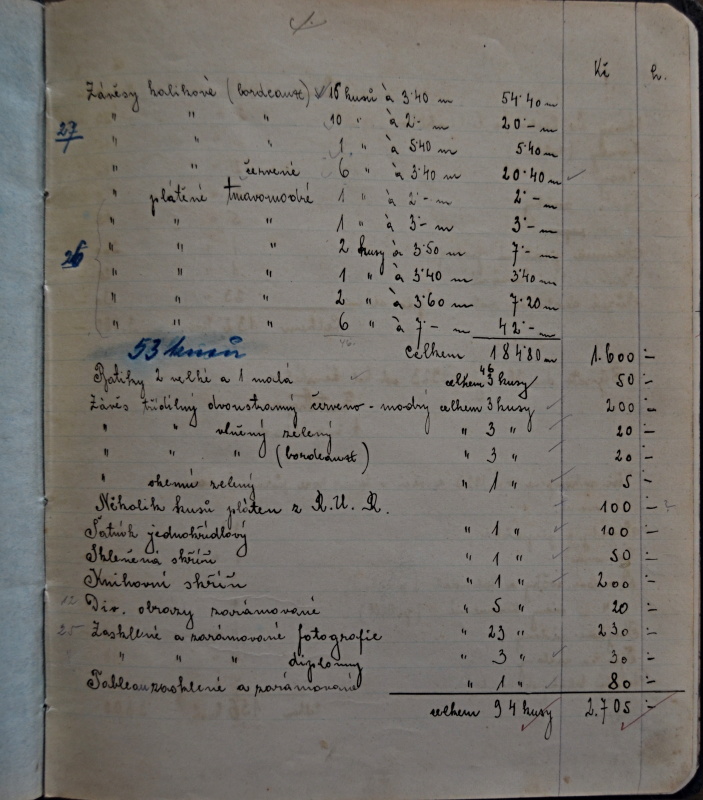 Kč h.
Závěsy kalikové (bordeauxt) 16 kusů à 3·40 m 54·40 m
27 " " " 10 " à 2·- m 20·- m
" " " 1 " à 5·40 m 5·40 m
" " červené 6 " à 3·40 m 20·40 m
" plátěné tmavomodré 1 " à 2·- m 2·- m
" " " 1 " à 3·- m 3·- m
26 " " " 2 kusy à 3·50 m 7·- m
" " " 1 " à 3·40 m 3·40 m
" " " 2 " à 3·60 m 7·20 m
" " " 6 " à 7·- m 42·- m
53 kusů celkem 184·80 m 1.600 :-
46
Batiky 2 velké a 1 malá celkem 3 kusy 50 :-
Závěs třídílný dvoustranný červeno-modrý celkem 3 kusy 200 :-
" " vlněný zelený " 3 " 20 :-
" " " (bordeauxt) " 3 " 20 :-
" zelený " 1 " 5 :-
Několik kusů pláten z R.U.R. 100 :- ?
Šatník jednokřídlový " 1 " 100 :-
Skleněná skříň " 1 " 50 :-
Knihovní skříň " 1 " 200 :-
12 Div. obrazy zarámované " 5 " 20 :-
25 Zasklené a zarámované fotografie " 23 " 230 :-
" " " diplomy " 3 " 30 :-
Tableau zasklené a zarámované " 1 " 80 :-
celkem 94 kusy 2.705 :-